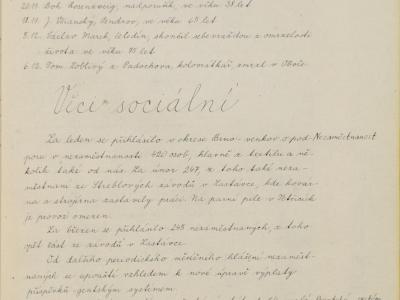 20.11. Boh. Rosenzweig, nadporučík, ve věku 38 let
18.11. J. Uranský, Tendrov, ve věku 65 let
3.12. Václav Marek, Letidin, skončil sebevraždou z omrzelosti
života ve věku 75 let
6.12. Tom. Koblivý z Padochova, kolovrátkář, umrel v Obo
Věci sociální
Za leden se přihlásilo v okrese Brno-venkov o pod- Nezaměstnanost
poru v nezaměstnanosti 420 osob, hlavně z textilu a ně-
kolik také od nás. Za únor 247, z toho také neza-
městnaní ze Steblových závodů v Zastávce, kde kovár-
na a strojírna zastavily práci. Na parní pile v Tetčicích
je provoz omezen.
Za březen se přihlásilo 245 nezaměstnaných, z toho
opět část ze závodů v Zastávce.
Od dalšího periodického měsíčního hlášení nezaměst-
naných se upouští vzhledem k nové úpravě výplaty
příspěvků gentským systemem.